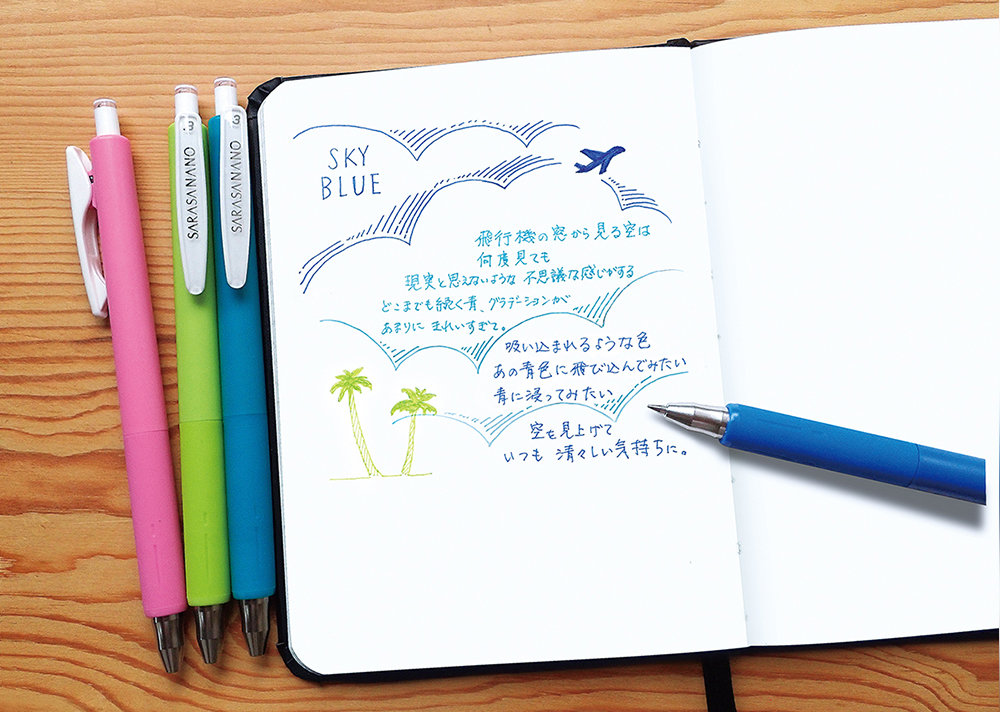 SKY
BLUE
飛行機の窓から見る空は
何度見ても
現実と思えないような 不思議な感じがする
どこまでも続く青、グラデーションが
あまりに きれいすぎて。
吸い込まれるような色
あの青色に飛び込んでみたい
青に浸ってみたい
空を見上げて
いつも 清々しい気持ちに。
.3 SARASA NANO
.3 SARASA NANO